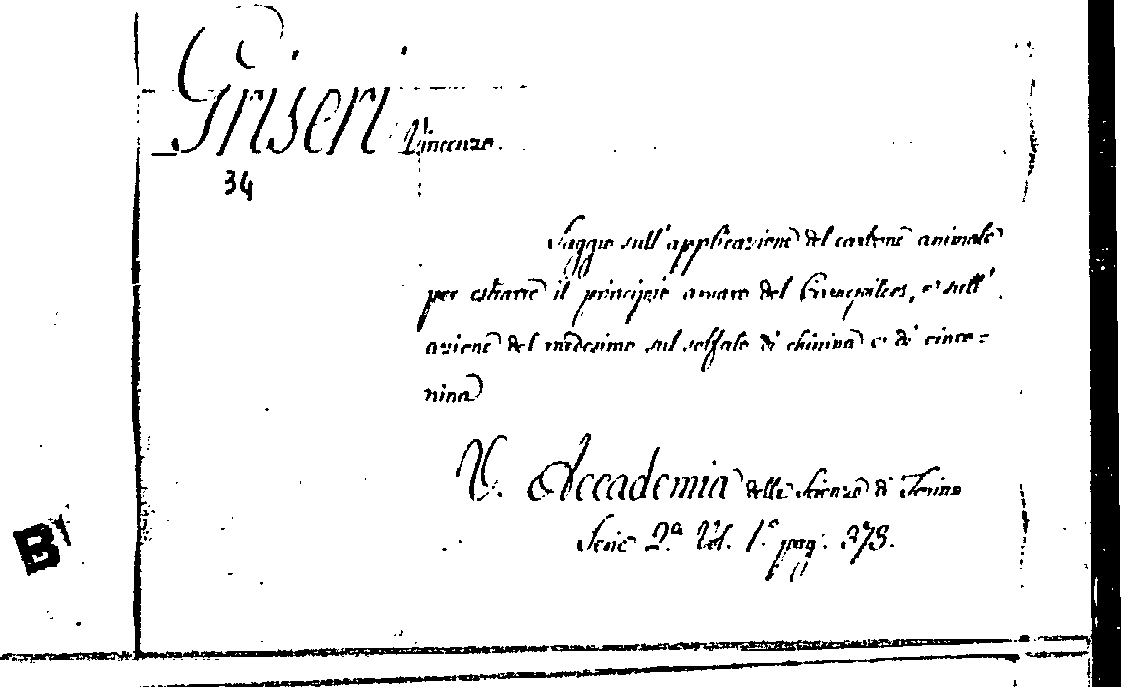 Griseri Vincenzo.
34
Saggio sull'applicazione del carbone animale
per estrarre il principio amaro del , e sull'
azione del medesimo sul solfato di chinina e di cinco=
nina
V. Accademia delle Scienze di Torino
Serie 2.ª Vol. 1.º pag. 373.
B